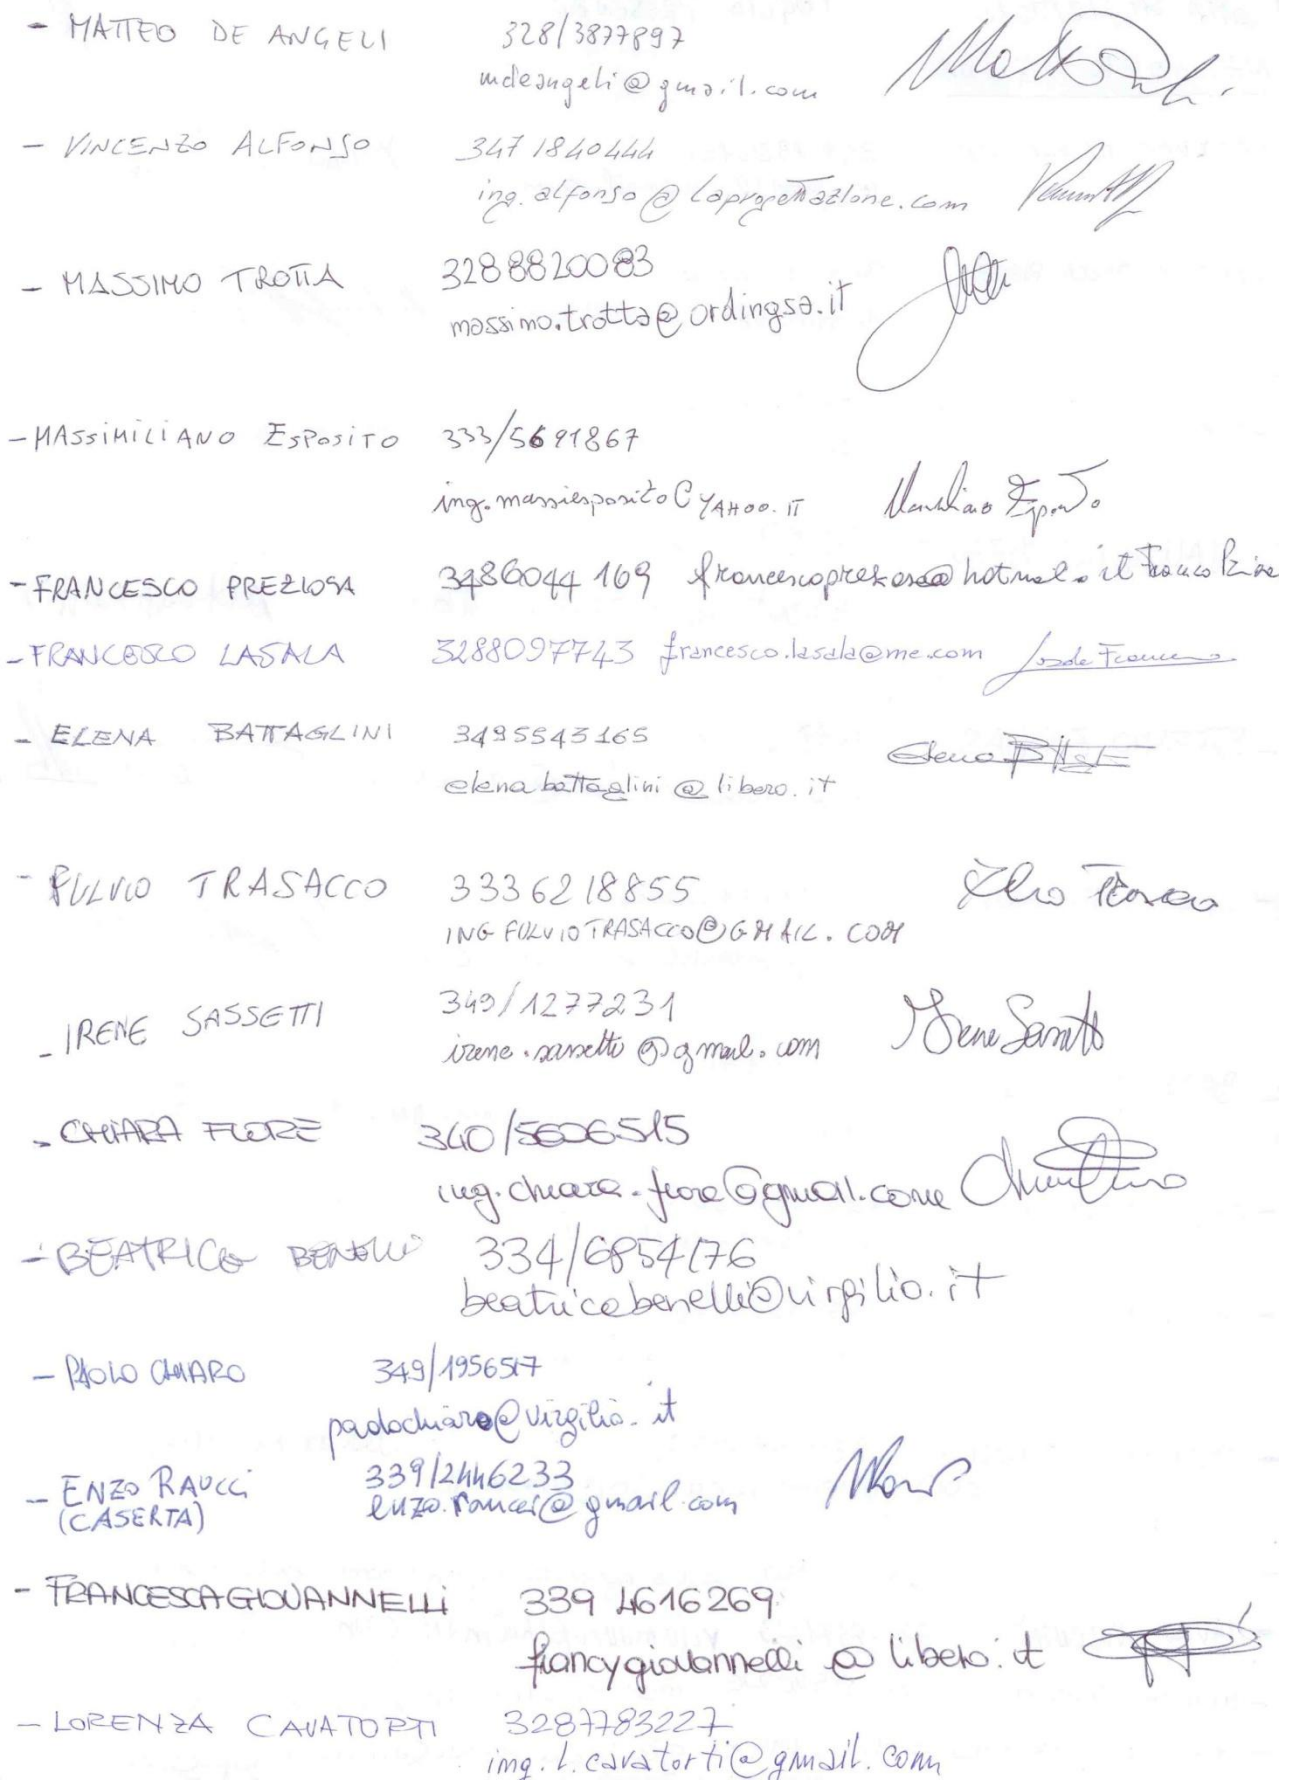 - MATTEO DE ANGELI 328/3877897
mdeangeli@gmail.com
- VINCENZO ALFONSO 347 1840444
ing.alfonso@laprogettazione.com
- MASSIMO TROTTA 3288820083
massimo.trotta@ordingsa.it
- MASSIMILIANO ESPOSITO 333/5691867
ing.massiesposito@YAHOO.IT
- FRANCESCO PREZIOSA 3486044169 francescopreziosa@hotmail.it
- FRANCESCO LASALA 3288097743 francesco.lasala@me.com
- ELENA BATTAGLINI 3495543165
elena.battaglini@libero.it
- FULVIO TRASACCO 3336218855
INGFULVIOTRASACCO@GMAIL.COM
- IRENE SASSETTI 349/1277231
irene.sassetti@gmail.com Irene Sassetti
- CHIARA FIORE 340/5606515
ing.chiara.fiore@gmail.com
- BEATRICE BENELLI 334/6854176
beatricebenelli@virgilio.it
- PAOLO CHIARO 349/1956517
paolochiaro@virgilio.it
- ENZO RAUCCI 339/2446233
(CASERTA) enzo.raucci@gmail.com
- FRANCESCA GIOVANNELLI 339 4616269
francygiovannelli@libero.it
- LORENZA CAVATORTI 3287783227
ing.l.cavatorti@gmail.com